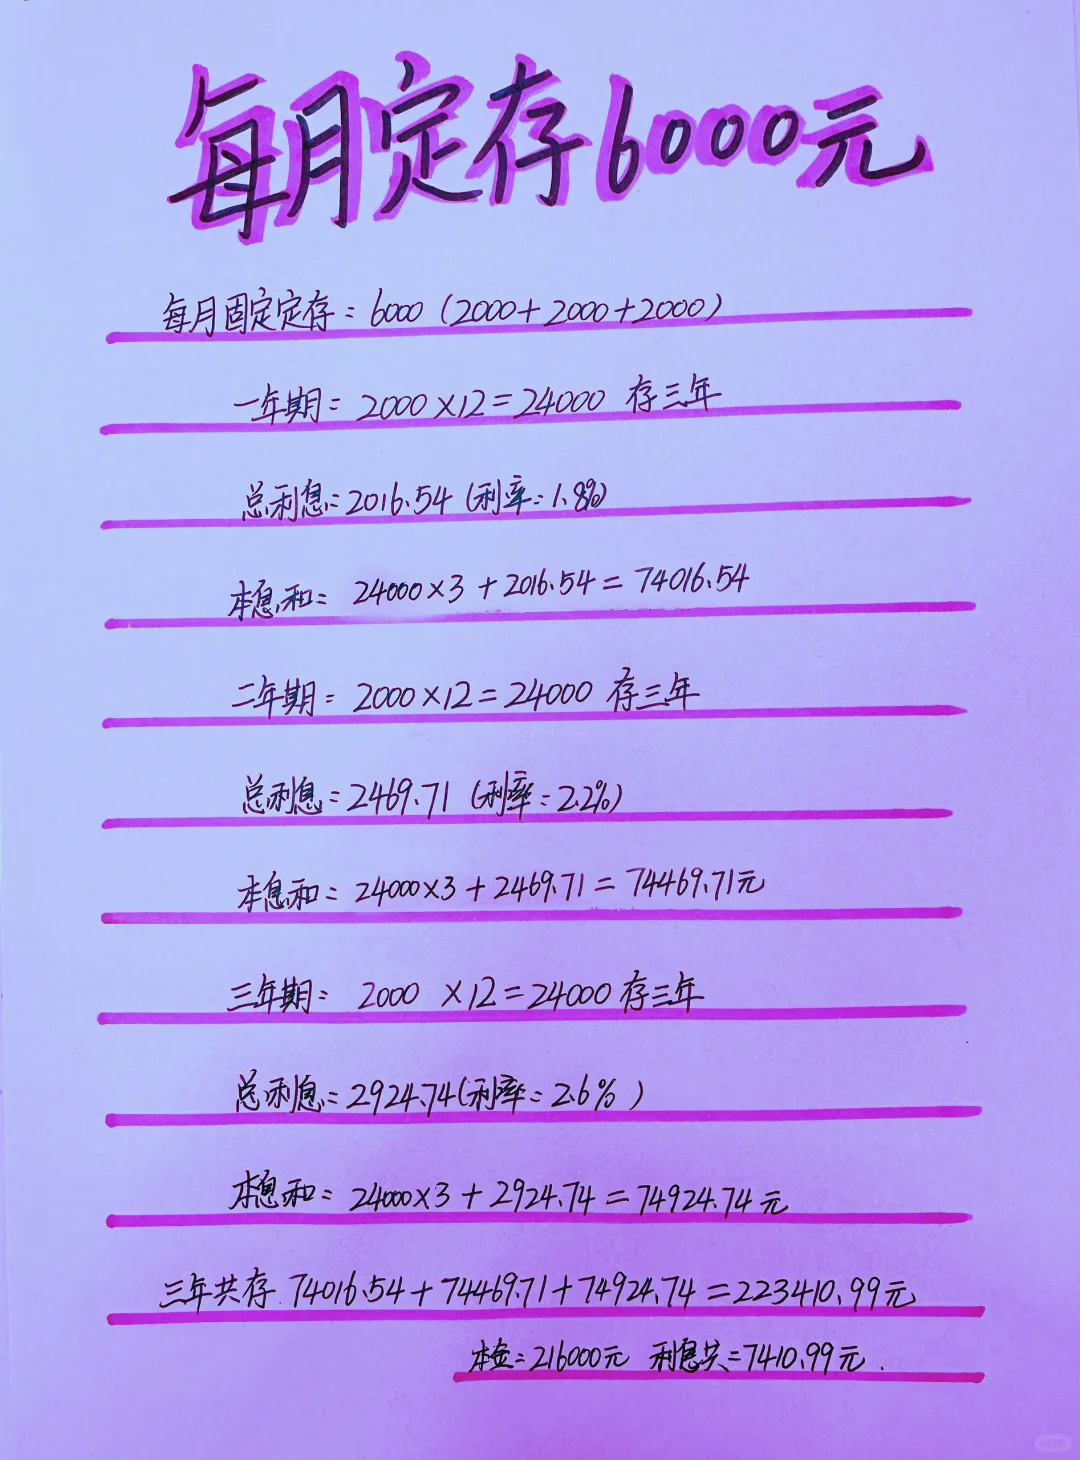 每月定存6000元
每月固定定存：6000（2000+2000+2000）
一年期：2000×12=24000 存三年
总利息：2016.54（利率：1.8%）
本息和： 24000×3+2016.54=74016.54
二年期：2000×12=24000 存三年
总利息：2469.71（利率：2.2%）
本息和：24000×3+2469.71=74469.71元
三年期： 2000 ×12=24000 存三年
总利息：2924.74（利率：2.6%）
本息和：24000×3+2924.74=74924.74元
三年共存 74016.54+74469.71+74924.74=223410.99元
本金：216000元 利息共=7410.99元.